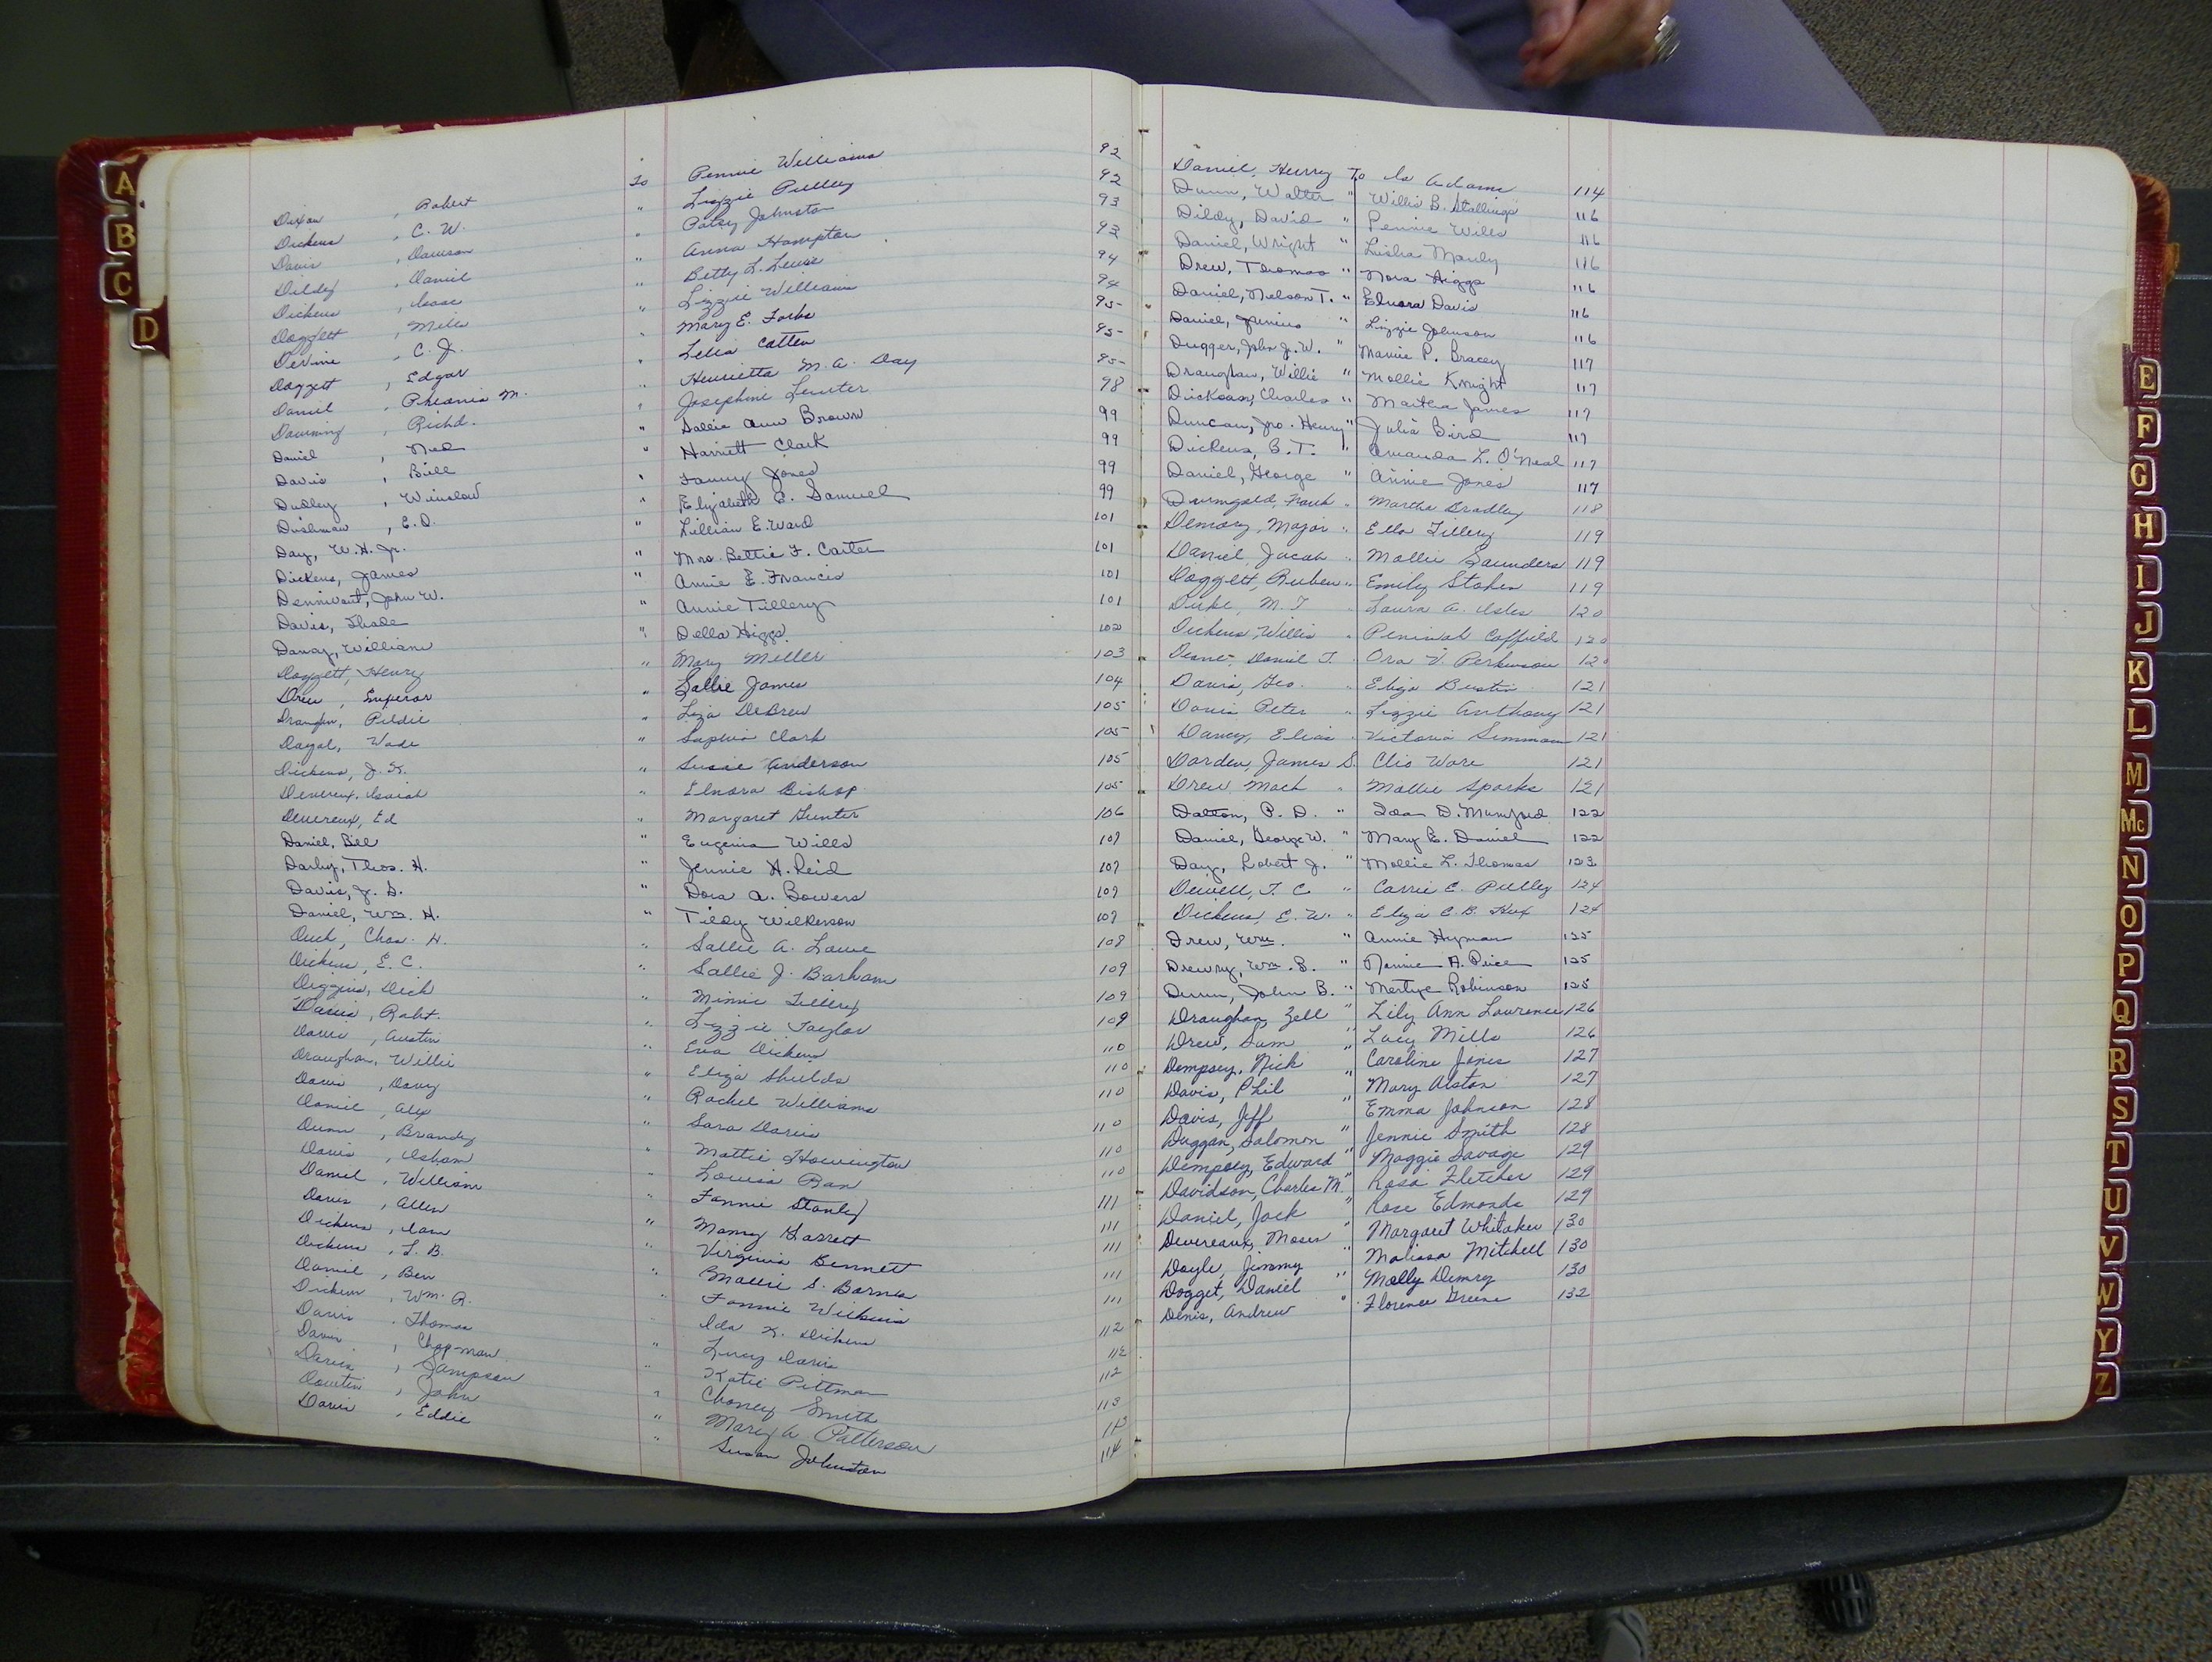 A
B
C
D
Dixon, Robert To Pennie Williams 92
Dickens, C. W. " Lizzie Pulley 92
Davis, Dawson " Patsy Johnston 93
Dildy, Daniel " Anna Hampton 93
Dickens, Isaac " Betty L. Lewis 94
Doggett, Miles " Lizzie Williams 94
Devine, C. J. " Mary E. Forbs 95
Doggett, Edgar " Lelia Cotten 95
Daniel, Pheonia M. " Henrietta M. A. Day 95
Downing, Richd. " Josephine Lewter 98
Daniel, Ned " Sallie Ann Brown 99
Davis, Bill " Harriett Clark 99
Dudley, Winslow " Fanny Jones 99
Dishman, E. D. " Elizabeth E. Samuel 99
Day, W. H. Jr. " Lillian E. Ward 101
Dickens, James " Mrs. Bettie F. Carter 101
John W. " Annie E. Francis 101
Davis, Shade " Annie Tillery 101
Dancy, William " Della Higgs 102
Doggett, Henry " Mary Miller 103
Drew, Emperor " Sallie James 104
Draughn, Piddie " Liza DeBrew 105
Wade " Clark 105
Dickens, J. K. " Susie Anderson 105
Devereux, Isaiah " Elnora Bishop 105
Devereux, Ed " Margaret Gunter 106
Daniel, Bill " Eugenia Wills 107
Darby, Thos. H. " Jennie H. Reid 107
Davis, J. S. " Dora A. Bowers 107
Daniel, Wm. H. " Tildy Wilkerson 107
Chas. H. " Sallie A. Lowe 108
Dickens, E. C. " Sallie J. Barham 109
Diggins, Dick " Minnie Tillery 109
Davis, Robt. " Lizzie Taylor 109
Davis, Austin " Eva Dickens 110
Draughan, Willie " Eliza Shields 110
Davis, Davy " Rachel Williams 110
Daniel, Alex " Sara Davis 110
Dunn, Brandy " Mattie Howington 110
Davis, Isham " Louisa Ran 110
Daniel, William " Fannie Stanly 111
Davis, Allen " Garrett 111
Dickens, Sam " Virginia Bennett 111
Dickens, L. B. " Mollie S. Barnes 111
Daniel, Ben " Fannie Wilkins 111
Dickens, Wm. R. " Ida K. Dickens 112
Davis, Thomas " Lucy Davis 112
Davis, Chapman " Katie Pittman 112
Davis, Sampson " Smith 113
John " Mary A. Patterson 113
Davis, Eddie " Susan Johnston 114
Daniel, Henry To Is Adams 114
Dunn, Walter " Willie B. Stallings 116
Dildy, David " Pennie Wills 116
Daniel, Wright " Lisha Manly 116
Drew, Thomas " Nora Higgs 116
Daniel, Nelson T. " Elnora Davis 116
Daniel, Junius " Lizzie Johnson 116
Dugger, John J. W. " Mamie P. Bracey 117
Draughan, Willie " Mollie Knight 117
Dickson, Charles " Martha James 117
Duncan, Jno. Henry " Julia Bird 117
Dickens, B. T. " Amanda L. O'Neal 117
Daniel, George " Annie Jones 117
Frank " Martha Bradley 118
Demory, Major " Ella Tillery 119
Daniel, Jacob " Mollie Saunders 119
Doggett, Ruben " Emily Stokes 119
Duke, M. T. " Laura A. Isles 120
Dickens, Willis " Peninah Coffield 120
Daniel T. " Ora V. Perkinson 120
Davis, Geo. " Eliza Bustin 121
Davis Peter " Lizzie Anthony 121
Dancy, Elias " Victoria Simmons 121
Darden, James S. Clio Ware 121
Drew Mack " Mollie Sparks 121
Dalton, P. D. " Ida D. Mumford 122
Daniel, George W. " Mary E. Daniel 122
Day, Robert J. " Mollie L. Thomas 123
Dewell, T. C. " Carrie E. Pulley 124
Dickens E. W. " Eliza C. B. Hux 124
Drew, Wm. " Annie Hyman 125
Drewry, Wm. S. " Nannie A. Price 125
John B. " Mertye Robinson 125
Draughan, Zell " Lily Ann Lawrence 126
Drew, Sam " Lucy Mills 126
Dempsey, Nick " Caroline Jones 127
Davis, Phil " Mary Alston 127
Davis, Jeff " Emma Johnson 128
Duggan, Solomon " Jennie Smith 128
Dempsey, Edward " Maggie Savage 129
Davidson, Charles M. " Rosa Fletcher 129
Daniel, Jack " Rose Edmonds 129
Devereaux, Moses " Margaret Whitaker 130
Doyle, Jimmy " Malissa Mitchell 130
Dogget, Daniel " Molly Demry 130
Denis, Andrew " Florence Greene 132
E
F
G
H
I
J
K
L
M
Mc
N
O
P
Q
R
S
T
U
V
W
Y
Z